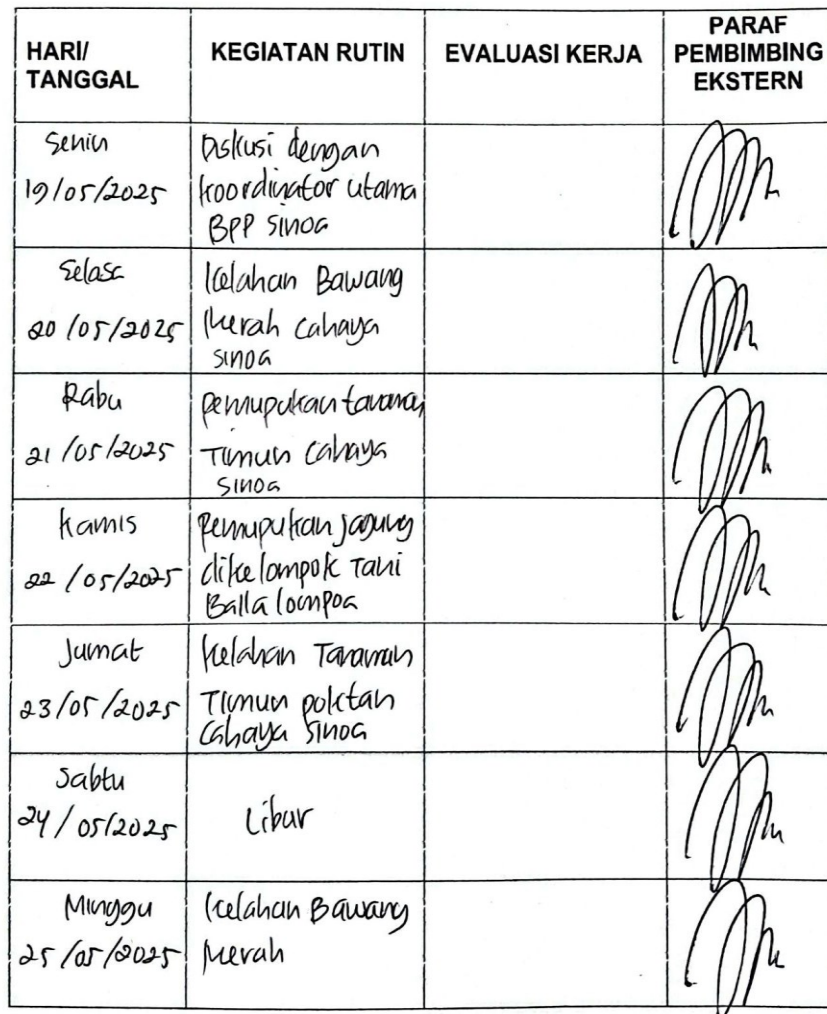 HARI/
TANGGAL
KEGIATAN RUTIN
EVALUASI KERJA
PARAF
PEMBIMBING
EKSTERN
Senin
19/05/2025
Diskusi dengan
koordinator utama
BPP Sinoa
Selasa
20/05/2025
kelahan Bawang
Merah cahaya
sinoa
Rabu
21/05/2025
pemupukan tanaman
Timun Cahaya
Sinoa
Kamis
22/05/2025
Pemupukan jagung
dikelompok Tani
Balla lompoa
Jumat
23/05/2025
kelahan Tanaman
Timun poktan
Cahaya Sinoa
Sabtu
24/05/2025
Libur
Minggu
25/05/2025
kelahan Bawang
Merah